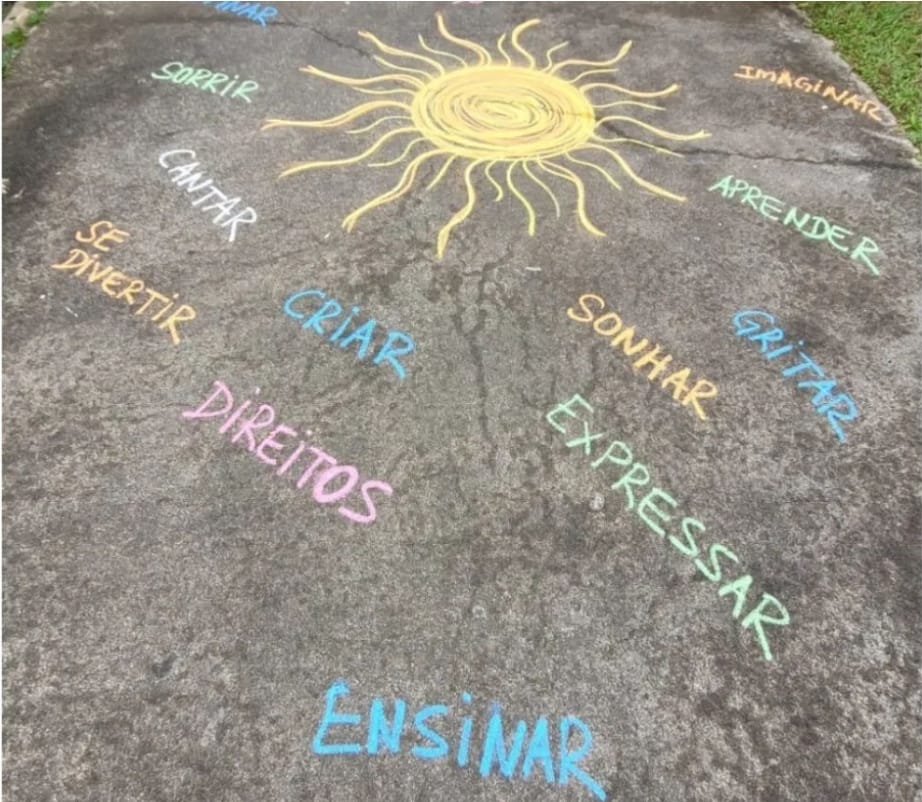 SORRIR
IMAGINAR
CANTAR
APRENDER
SE
DIVERTIR
CRIAR
SONHAR
GRITAR
DIREITOS
EXPRESSAR
ENSINAR